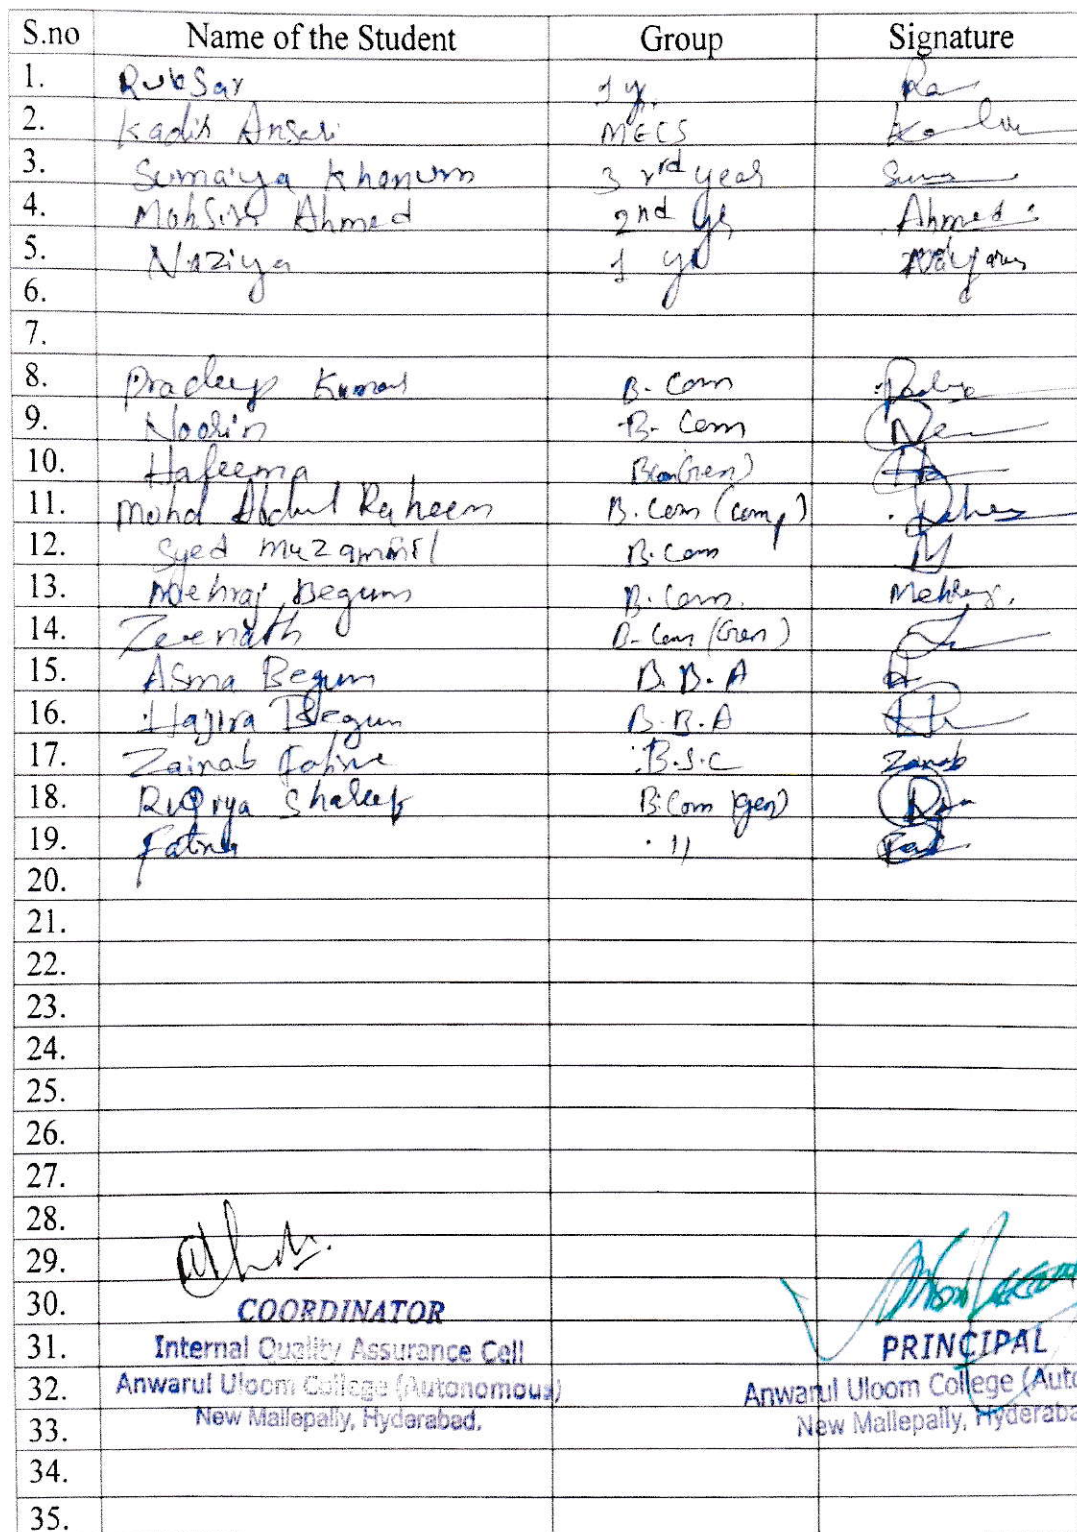 S.no Name of the Student Group Signature
1. RukSar 1 yr.
2. Kadir Ansari MECS
3. Sumaiya Khanum 3 rd year
4. Mohsin Ahmed 2nd yr Ahmed
5. Naziya 1 yr
6.
7.
8. Pradeep Kumar B. Com
9. Noorin B. Com
10. Hafeema BCom(Gen)
11. Mohd Abdul Raheem B.Com (Comp)
12. Syed muzammil B.Com M
13. Mehraj Begum B.Com. Mehraj.
14. Zeenath B-Com (Gen)
15. Asma Begum B.B.A A
16. Hajira Begum B.B.A
17. Zainab Fatima B.S.C Zanab
18. Ruqiya Shaleef B.Com (gen)
19. Fatima "
20.
21.
22.
23.
24.
25.
26.
27.
28.
29.
30. COORDINATOR
31. Internal Quality Assurance Cell PRINCIPAL
32. Anwarul Uloom College (Autonomous) Anwarul Uloom College (Auto
33. New Mallepally, Hyderabad. New Mallepally, Hyderaba
34.
35.